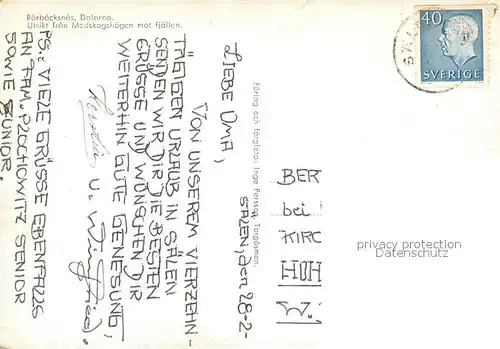 Rörbäcksnäs, Dalarna.
Utsikt från Medskogshögen mot fjällen.
40
SVERIGE
SÄLEN, den 28-2-
LIEBE OMA,
VON UNSEREM VIERZEHN-
TÄGIGEN URLAUB IN SÄLEN
SENDEN WIR DIR DIE BESTEN
GRÜSSE UND WÜNSCHEN DIR
WEITERHIN GUTE GENESUNG,
u. Winfried.
PS.: VIELE GRÜSSE EBENFALLS
AN FAM. PLOCHOWITZ SENIOR
SOWIE JUNIOR.
Förlag och färgfoto: Inge Persson, Torgåsmon.
BER
bei
KIRC
HOH
W.
privacy protection
Datenschutz